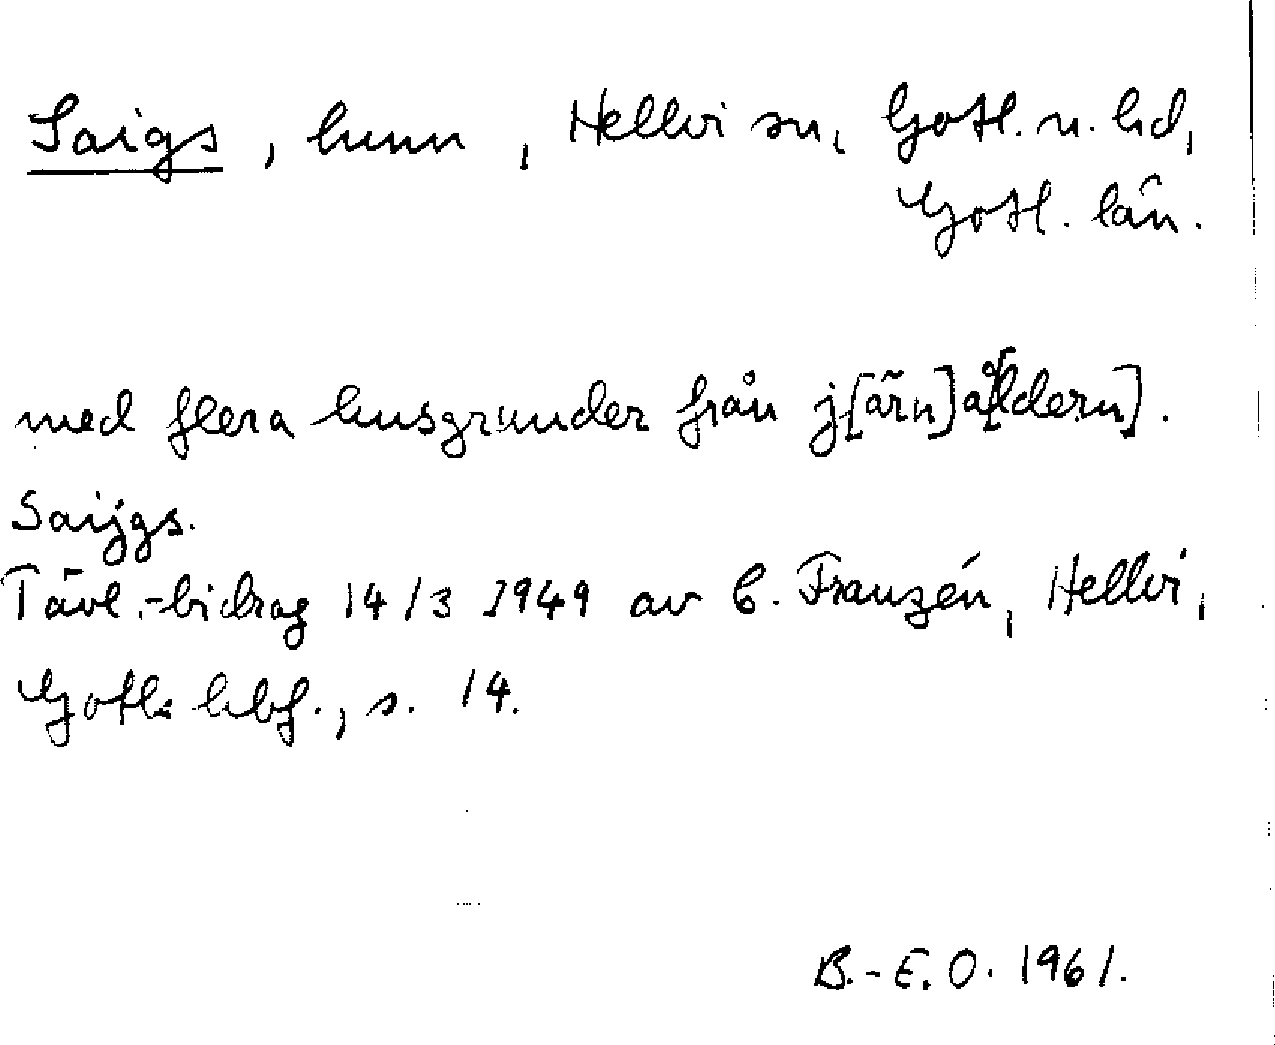 Saigs, hmn, Hellvi sn, Gotl. n. hd,
Gotl. län.
med flera husgrunder från j[ärn]å[ldern].
Saijgs.
Tävl.-bidrag 14/3 1949 av C. Franzén, Hellvi,
Gotl. hbf., s. 14.
B.-E. O. 1961.